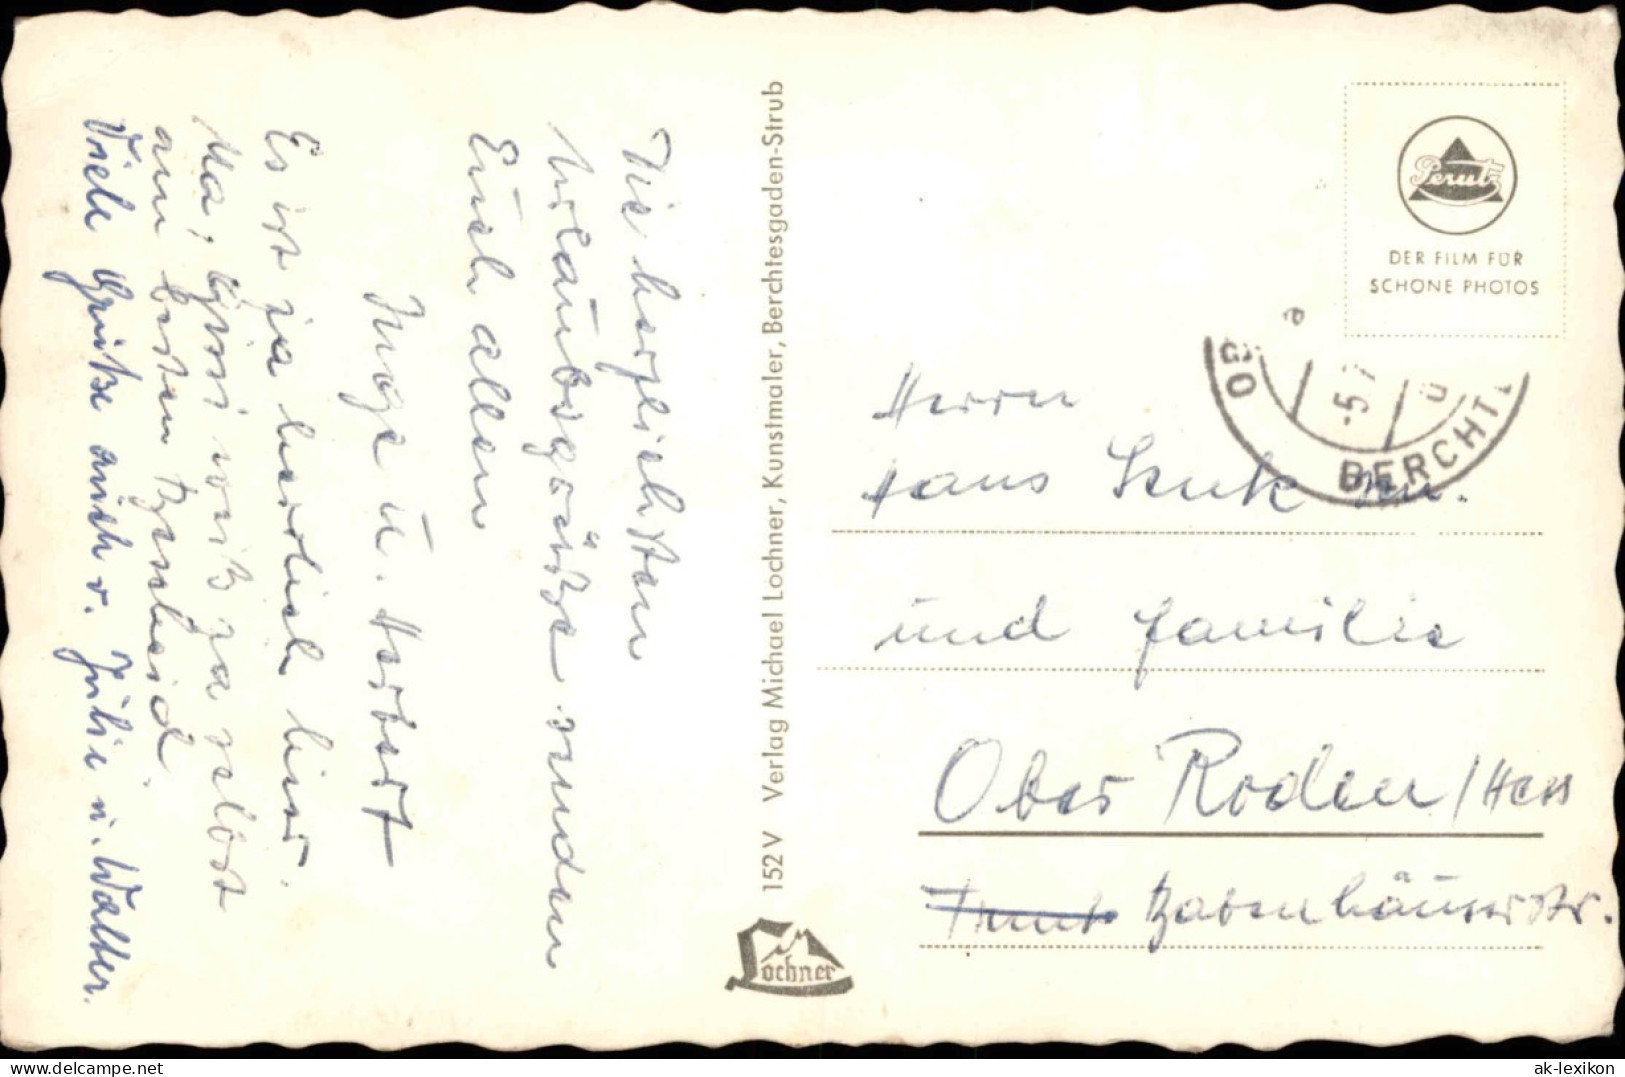 Die herzlichsten
Urlaubsgrüsse senden
Euch allen
Inge u. Herbert
Es ist ja herrlich hier.
Na, Gissi weiß ja selbst
am besten Bescheid
Viele Grüße auch v. Julie u. Walter.
152 V Verlag Michael Lochner, Kunstmaler, Berchtesgaden-Strub
Lochner
Perutz
DER FILM FÜR
SCHÖNE PHOTOS
-5.7
BERCHT
Herrn
Hans
und Familie
Ober Roden/Hess
Babenhäuserstr.
www.delcampe.net
ak-lexikon